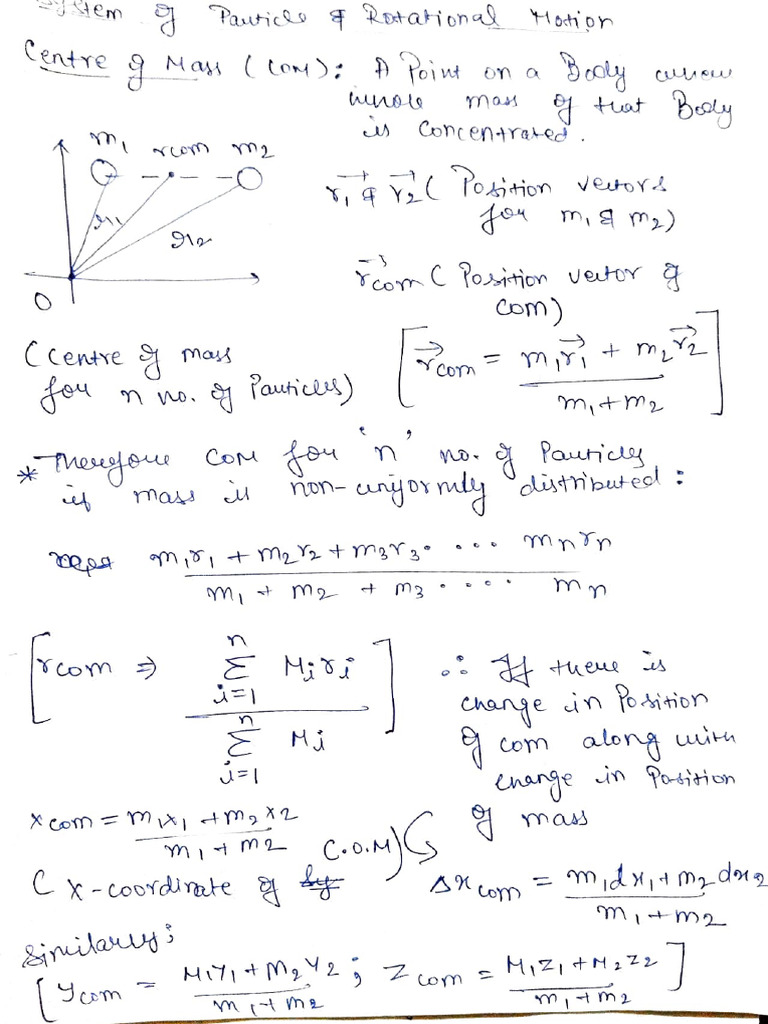 System of Particle & Rotational Motion
Centre of Mass (COM): A Point on a Body where
whole mass of that Body
is concentrated.
m1 rcom m2
r1
r2
O
r1 & r2 (Position vectors
for m1 & m2)
rcom (Position vector of
com)
(Centre of mass
for n no. of Particles)
[rcom = m1r1 + m2r2
m1+m2]
* Therefore COM for 'n' no. of Particles
if mass is non-uniformly distributed:
m1r1 + m2r2 + m3r3. ... mnrn
m1 + m2 + m3 .... mn
[rcom ⇒ n Σ i=1 Miri
n Σ i=1 Mi]
∴ If there is
change in Position
of com along with
change in Position
of mass
xcom = m1x1 + m2x2
m1 + m2
(x-coordinate of C.O.M)
Δxcom = m1dx1 + m2dx2
m1+m2
Similarly;
[ycom = M1Y1 + M2Y2 ; Zcom = M1Z1 + M2Z2]
m1+m2 m1+m2